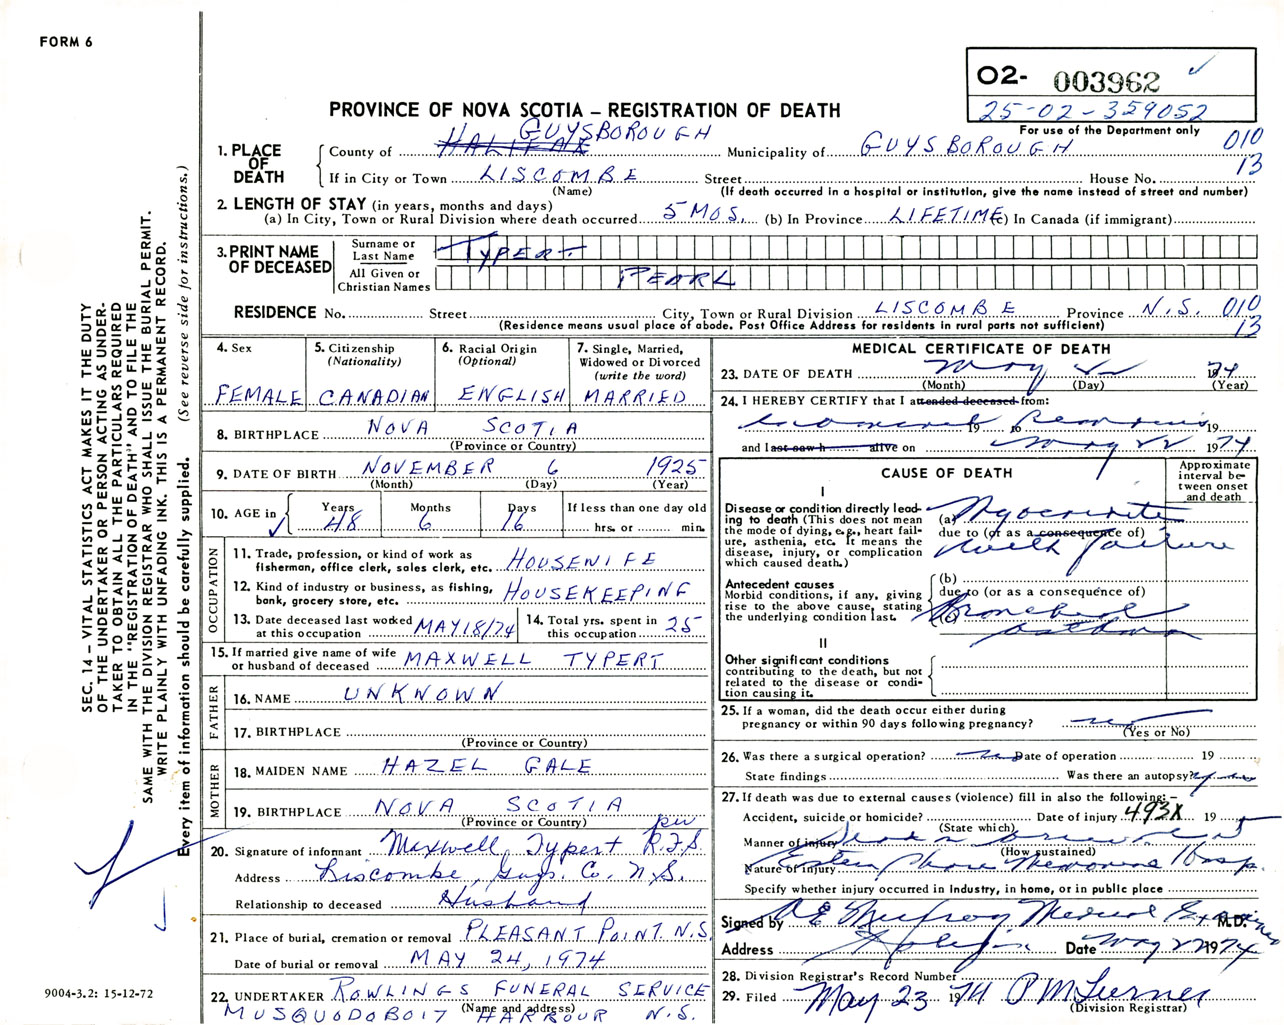 FORM 6
O2- 003962
25-02-359052
For use of the Department only
PROVINCE OF NOVA SCOTIA – REGISTRATION OF DEATH
1. PLACE OF DEATH
County of HALIFAX GUYSBOROUGH Municipality of GUYSBOROUGH 010
If in City or Town LISCOMBE Street House No. 13
(Name) (If death occurred in a hospital or institution, give the name instead of street and number)
2. LENGTH OF STAY (in years, months and days)
(a) In City, Town or Rural Division where death occurred 5 MOS. (b) In Province LIFETIME (c) In Canada (if immigrant)
3. PRINT NAME OF DECEASED
Surname or Last Name TYPERT
All Given or Christian Names PEARL
RESIDENCE No. Street City, Town or Rural Division LISCOMBE Province N.S. 010
(Residence means usual place of abode. Post Office Address for residents in rural parts not sufficient) 13
4. Sex FEMALE
5. Citizenship (Nationality) CANADIAN
6. Racial Origin (Optional) ENGLISH
7. Single, Married, Widowed or Divorced (write the word) MARRIED
8. BIRTHPLACE NOVA SCOTIA
(Province or Country)
9. DATE OF BIRTH NOVEMBER 6 1925
(Month) (Day) (Year)
10. AGE in Years 48 Months 6 Days 16 If less than one day old hrs. or min.
OCCUPATION
11. Trade, profession, or kind of work as fisherman, office clerk, sales clerk, etc. HOUSEWIFE
12. Kind of industry or business, as fishing, bank, grocery store, etc. HOUSEKEEPING
13. Date deceased last worked at this occupation MAY 18/74
14. Total yrs. spent in this occupation 25
15. If married give name of wife or husband of deceased MAXWELL TYPERT
FATHER
16. NAME UNKNOWN
17. BIRTHPLACE
(Province or Country)
MOTHER
18. MAIDEN NAME HAZEL GALE
19. BIRTHPLACE NOVA SCOTIA
(Province or Country)
20. Signature of informant Maxwell Typert per R.F.S.
Address Liscombe, Guys. Co. N.S.
Relationship to deceased Husband
21. Place of burial, cremation or removal PLEASANT POINT N.S.
Date of burial or removal MAY 24, 1974
22. UNDERTAKER ROWLINGS FUNERAL SERVICE
(Name and address)
MUSQUODOBOIT HARBOUR N.S.
MEDICAL CERTIFICATE OF DEATH
23. DATE OF DEATH May 22 1974
(Month) (Day) (Year)
24. I HEREBY CERTIFY that I attended deceased from:
19 to 19
and last saw h alive on May 22 1974
CAUSE OF DEATH
Approximate interval between onset and death
I
Disease or condition directly leading to death (This does not mean the mode of dying, e.g., heart failure, asthenia, etc. It means the disease, injury, or complication which caused death.)
(a) Myocardite
due to (or as a consequence of)
with failure
Antecedent causes
Morbid conditions, if any, giving rise to the above cause, stating the underlying condition last.
(b)
due to (or as a consequence of)
(c) Bronchial asthma
II
Other significant conditions contributing to the death, but not related to the disease or condition causing it.
25. If a woman, did the death occur either during pregnancy or within 90 days following pregnancy? no
(Yes or No)
26. Was there a surgical operation? no Date of operation 19
State findings Was there an autopsy?
27. If death was due to external causes (violence) fill in also the following:–
Accident, suicide or homicide? Date of injury 493X 19
(State which)
Manner of injury Dead on arrival at
(How sustained)
Nature of injury Eastern Shore Memorial Hosp.
Specify whether injury occurred in Industry, in home, or in public place
Signed by Medical Examiner M.D.
Address Date May 22 1974
28. Division Registrar's Record Number
29. Filed May 23 1974 P M Turner
(Division Registrar)
SEC. 14 – VITAL STATISTICS ACT MAKES IT THE DUTY
OF THE UNDERTAKER OR PERSON ACTING AS UNDER-
TAKER TO OBTAIN ALL THE PARTICULARS REQUIRED
IN THE "REGISTRATION OF DEATH" AND TO FILE THE
SAME WITH THE DIVISION REGISTRAR WHO SHALL ISSUE THE BURIAL PERMIT.
WRITE PLAINLY WITH UNFADING INK. THIS IS A PERMANENT RECORD.
Every item of information should be carefully supplied. (See reverse side for instructions.)
9004-3.2: 15-12-72